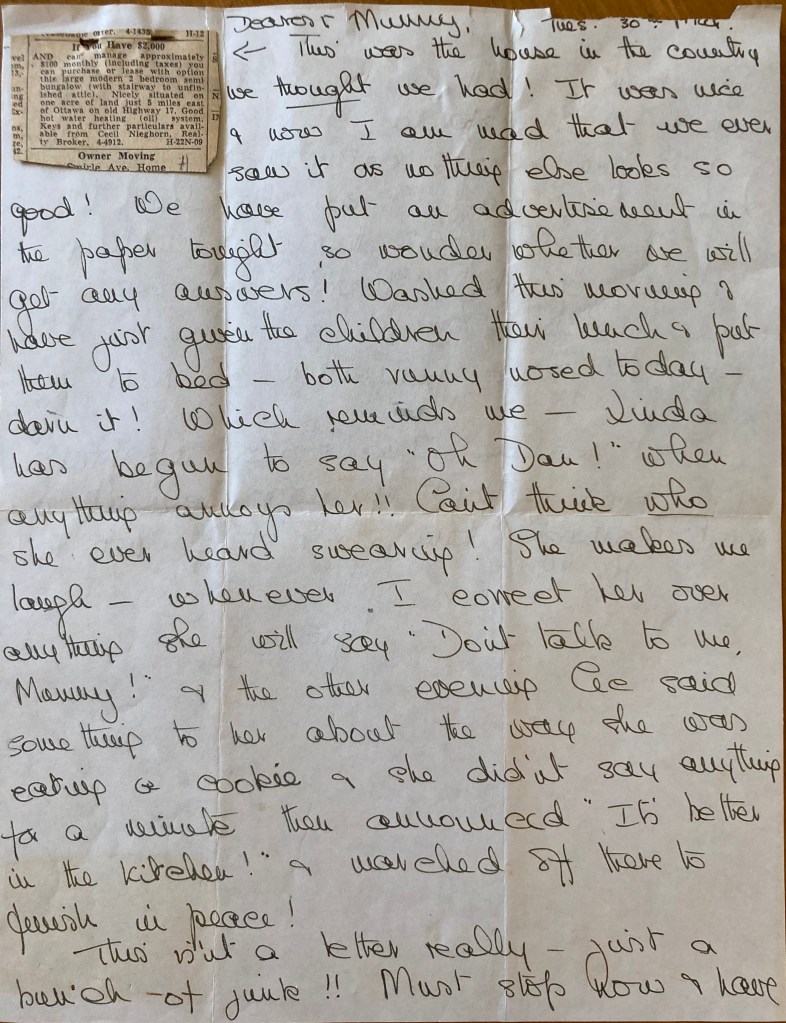 asonable offer. 4-1435 H-12
If You Have $2,000
AND can manage approximately
$100 monthly (including taxes) you
can purchase or lease with option
this large modern 2 bedroom semi
bungalow (with stairway to unfin-
ished attic). Nicely situated on
one acre of land just 5 miles east
of Ottawa on old Highway 17. Good
hot water heating (oil) system.
Keys and further particulars avail-
able from Cecil Nieghorn, Real-
ty Broker, 4-4912. H-22N-09
Owner Moving
Ave. Home
Dearest Mummy, Tues. 30th
← This was the house in the country
we thought we had! It was nice
& now I am mad that we ever
saw it as nothing else looks so
good! We have put an advertisement in
the paper tonight so wonder whether we will
get any answers! Washed this morning &
have just given the children their lunch & put
them to bed – both runny nosed today –
darn it! Which reminds me – Linda
has begun to say "Oh Dan!" when
anything annoys her!! Can't think who
she ever heard swearing! She makes me
laugh – whenever I correct her over
anything she will say "Don't talk to me,
Mummy!" & the other evening Cec said
something to her about the way she was
eating a cookie & she didn't say anything
for a minute then announced "It's better
in the kitchen!" & marched off there to
finish in peace!
This isn't a letter really – just a
bunch of junk!! Must stop now & have